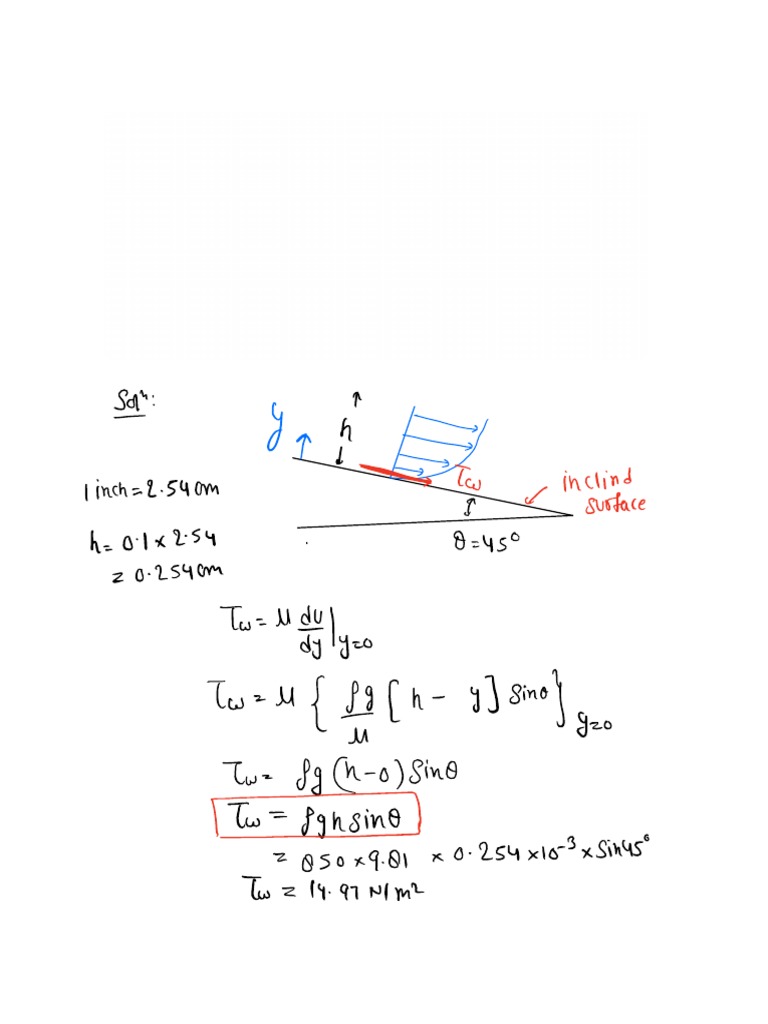 Solⁿ:
y
h
τω
inclind
surface
1 inch = 2.54 cm
θ = 45°
h = 0.1 × 2.54
= 0.254 cm
τω = μ du/dy |y=0
τω = μ { ρg/μ [h - y] sinθ }y=0
τω = ρg (h-0) sinθ
τω = ρghsinθ
= 850 × 9.81 × 0.254 × 10⁻³ × sin45°
τω = 14.97 N/m²